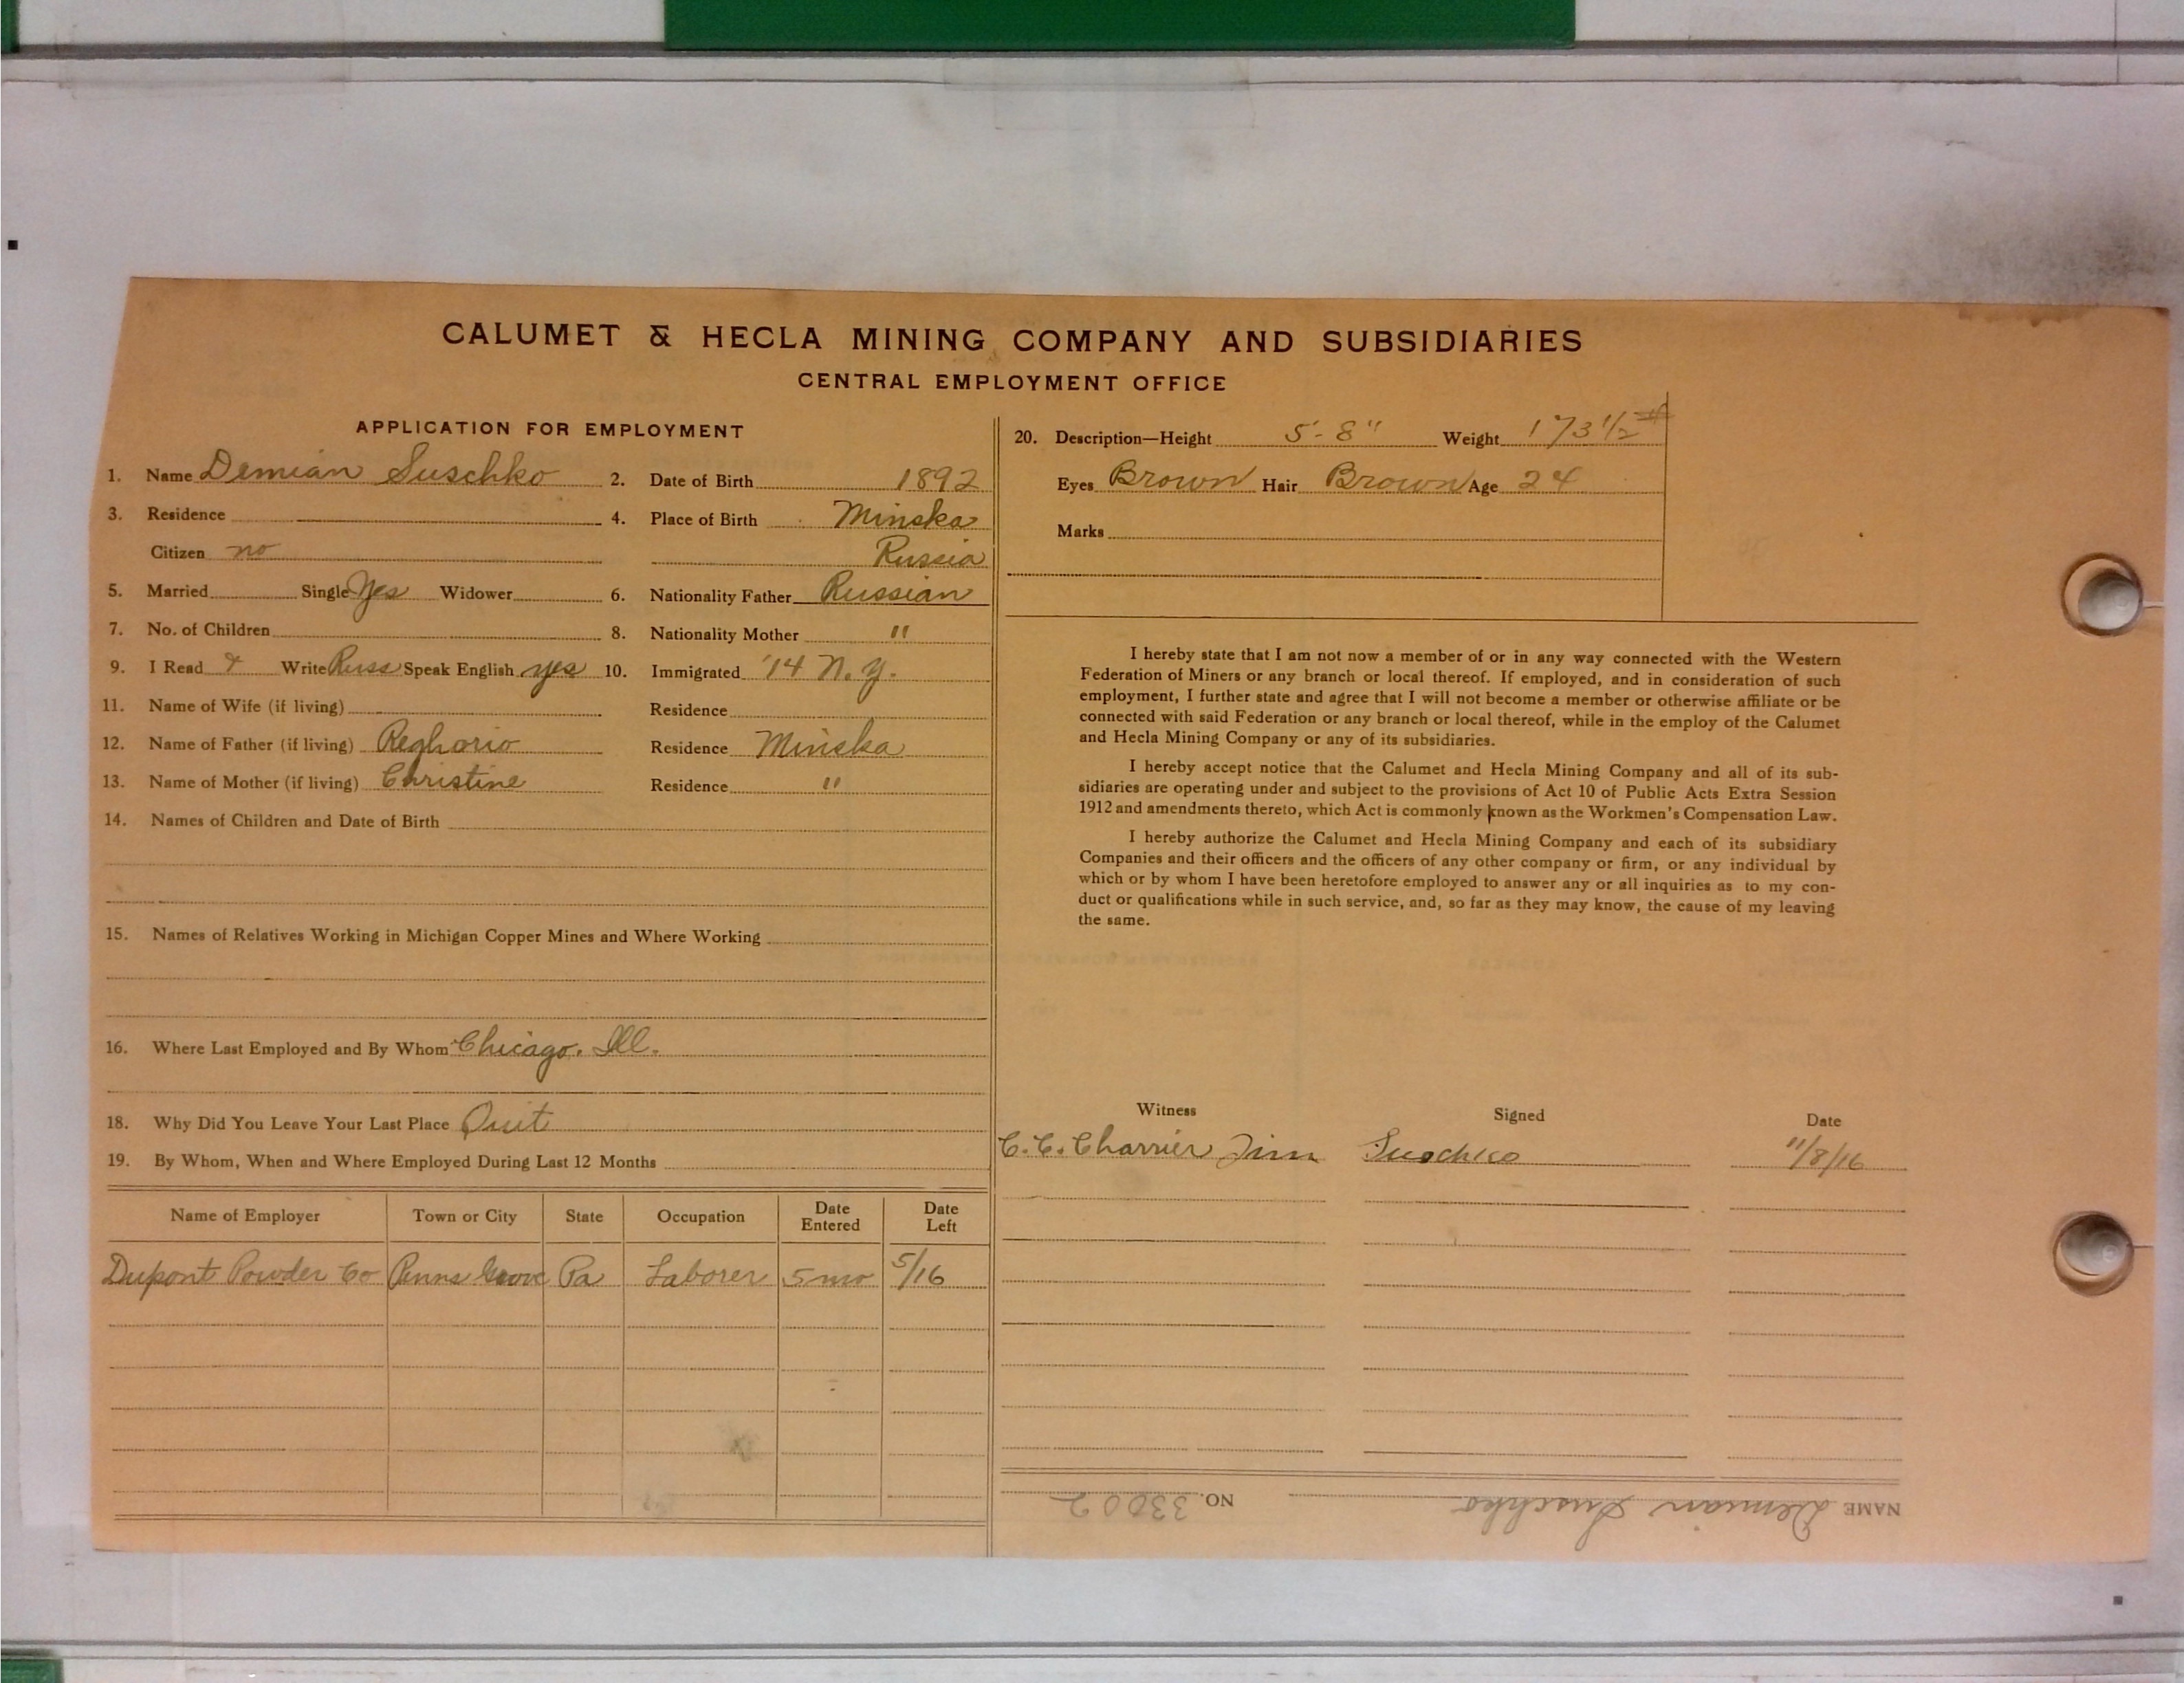 CALUMET & HECLA MINING COMPANY AND SUBSIDIARIES
CENTRAL EMPLOYMENT OFFICE
APPLICATION FOR EMPLOYMENT
1. Name Demian Suschko 2. Date of Birth 1892
3. Residence 4. Place of Birth Minska
Citizen no Russia
5. Married Single Yes Widower 6. Nationality Father Russian
7. No. of Children 8. Nationality Mother "
9. I Read & Write Russ Speak English yes 10. Immigrated '14 N.Y.
11. Name of Wife (if living) Residence
12. Name of Father (if living) Reghorio Residence Minska
13. Name of Mother (if living) Christine Residence "
14. Names of Children and Date of Birth
15. Names of Relatives Working in Michigan Copper Mines and Where Working
16. Where Last Employed and By Whom Chicago. Ill.
18. Why Did You Leave Your Last Place Quit
19. By Whom, When and Where Employed During Last 12 Months
Name of Employer Town or City State Occupation Date Entered Date Left
Dupont Powder Co Penns Grove Pa Laborer 5 mo 5/16
20. Description—Height 5'-8" Weight 173 1/2 #
Eyes Brown Hair Brown Age 24
Marks
I hereby state that I am not now a member of or in any way connected with the Western
Federation of Miners or any branch or local thereof. If employed, and in consideration of such
employment, I further state and agree that I will not become a member or otherwise affiliate or be
connected with said Federation or any branch or local thereof, while in the employ of the Calumet
and Hecla Mining Company or any of its subsidiaries.
I hereby accept notice that the Calumet and Hecla Mining Company and all of its sub-
sidiaries are operating under and subject to the provisions of Act 10 of Public Acts Extra Session
1912 and amendments thereto, which Act is commonly known as the Workmen's Compensation Law.
I hereby authorize the Calumet and Hecla Mining Company and each of its subsidiary
Companies and their officers and the officers of any other company or firm, or any individual by
which or by whom I have been heretofore employed to answer any or all inquiries as to my con-
duct or qualifications while in such service, and, so far as they may know, the cause of my leaving
the same.
Witness Signed Date
C. C. Charrier Jim Suschko 11/8/16
NAME Demian Suschko NO. 33002